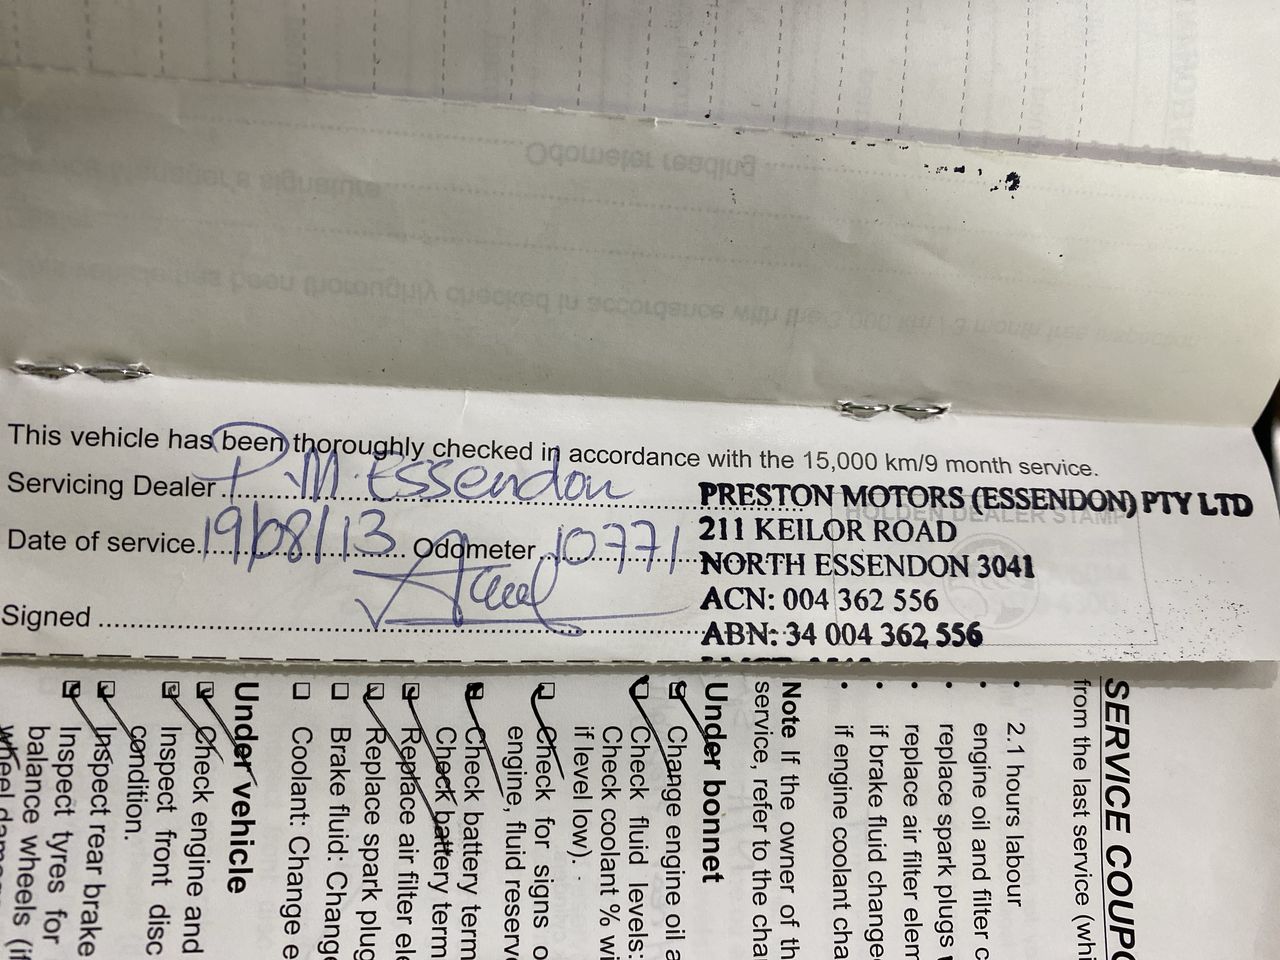 Odometer reading
Service Manager's signature
been thoroughly checked in accordance with the
This vehicle has been thoroughly checked in accordance with the 15,000 km/9 month service.
Servicing Dealer P.M. Essendon
Date of service 19/08/13 Odometer 10771
Signed
PRESTON MOTORS (ESSENDON) PTY LTD
HOLDEN DEALER STAMP
211 KEILOR ROAD
NORTH ESSENDON 3041
ACN: 004 362 556
ABN: 34 004 362 556
SERVICE COUPO
from the last service (whi
• 2.1 hours labour
• engine oil and filter c
• replace spark plugs
• replace air filter elem
• if brake fluid changed
• if engine coolant cha
Note If the owner of th
service, refer to the cha
Under bonnet
Change engine oil a
Check fluid levels:
Check coolant % wi
if level low).
Check for signs o
engine, fluid reserv
Check battery term
Check battery term
Replace air filter ele
Replace spark plug
Brake fluid: Change
Coolant: Change e
Under vehicle
Check engine and
Inspect front disc
condition.
Inspect rear brake
Inspect tyres for
balance wheels (if